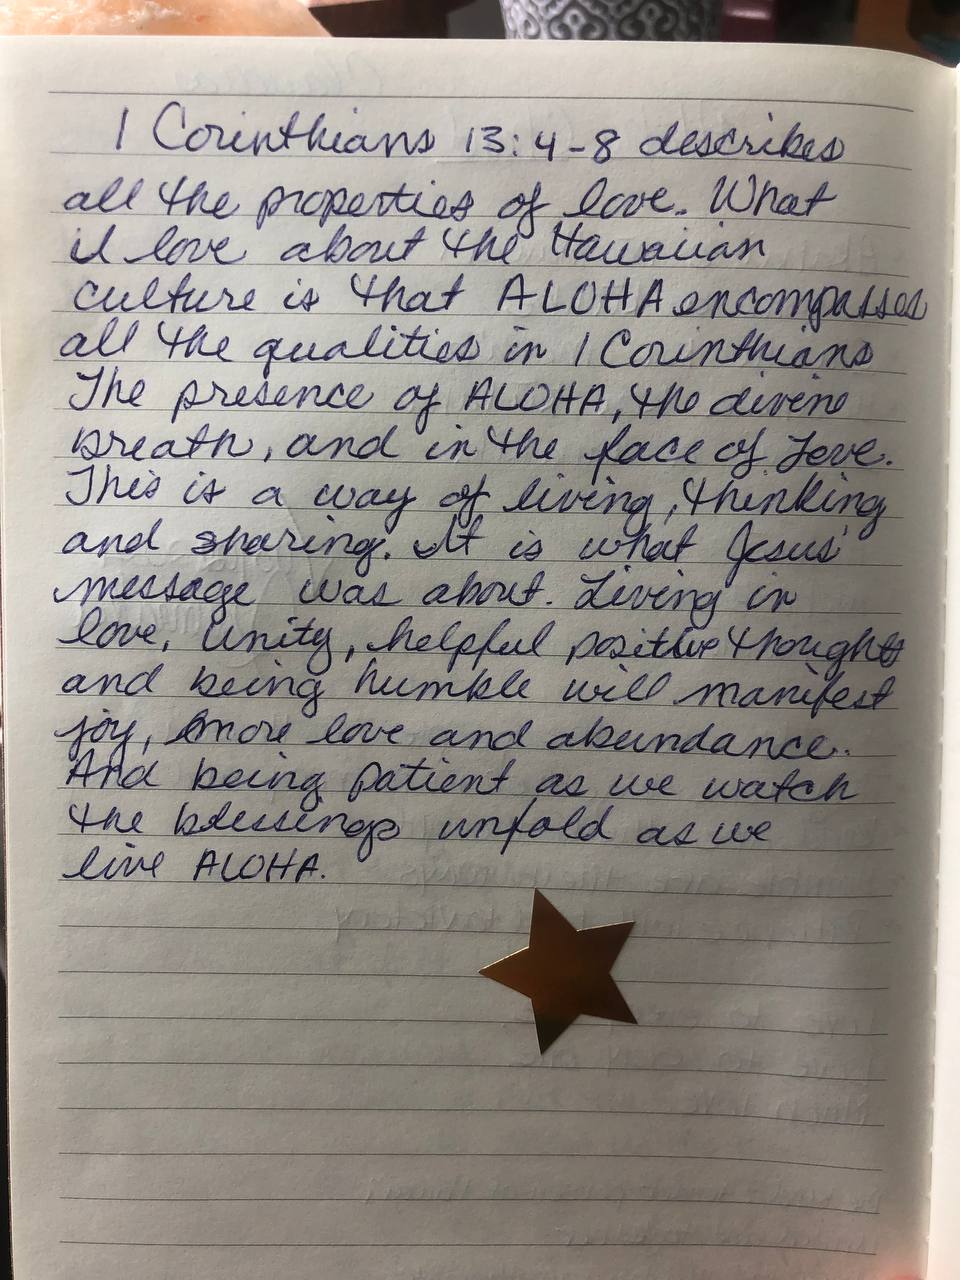 1 Corinthians 13:4-8 describes
all the properties of love. What
I love about the Hawaiian
culture is that ALOHA encompasses
all the qualities in 1 Corinthians
The presence of ALOHA, the divine
breath, and in the face of Love.
This is a way of living, thinking
and sharing. It is what Jesus'
message was about. Living in
love, unity, helpful positive thoughts
and being humble will manifest
joy, more love and abundance.
And being patient as we watch
the blessings unfold as we
live ALOHA.